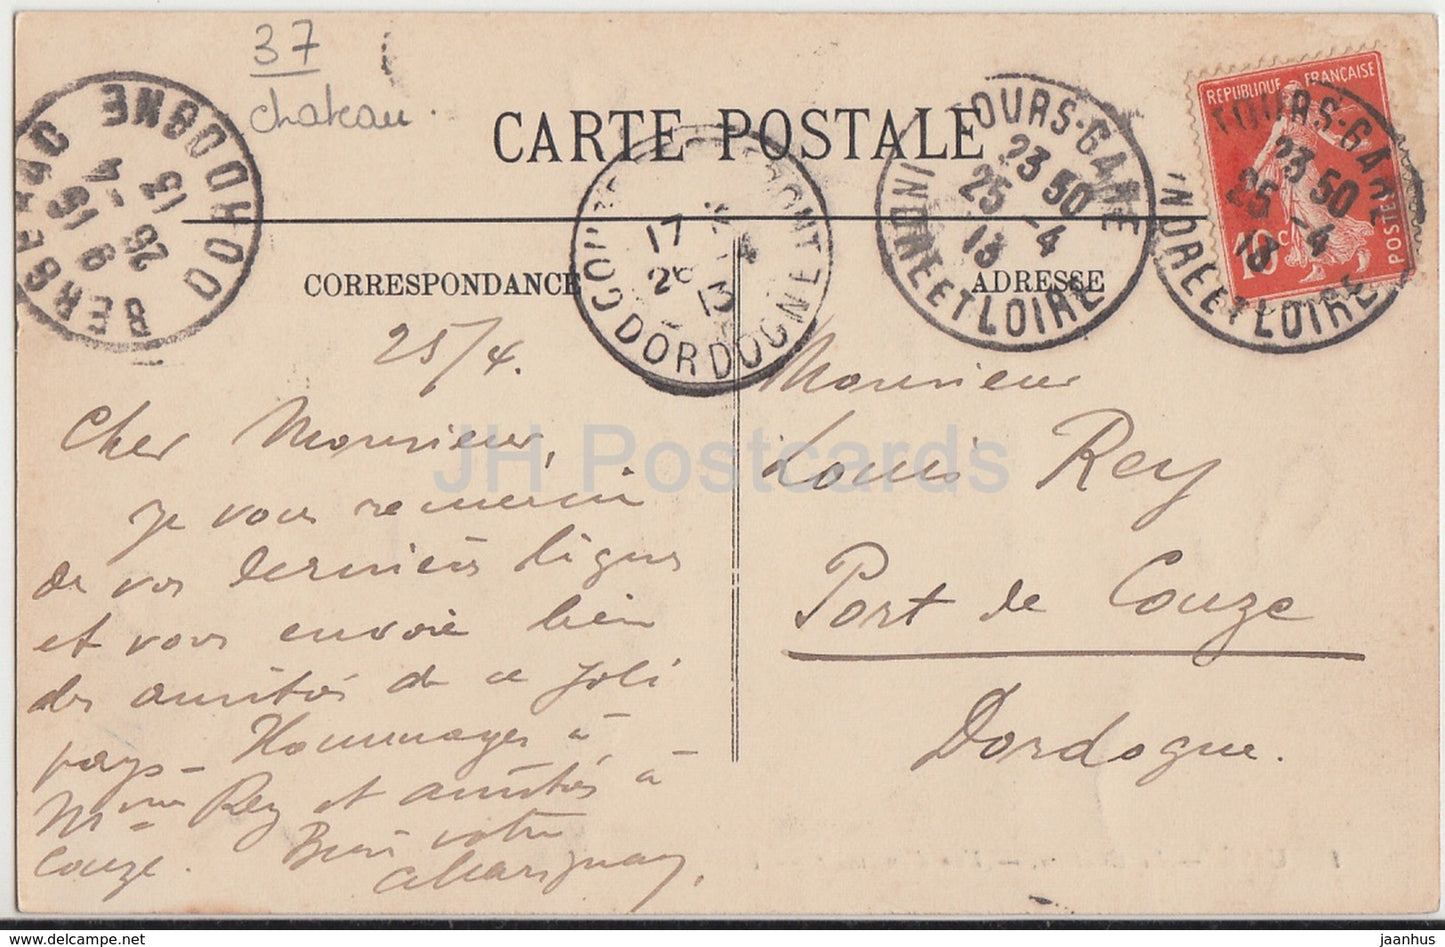 37
chateau.
CARTE POSTALE
CORRESPONDANCE
ADRESSE
REPUBLIQUE FRANÇAISE
10 c
POSTES
TOURS-GARE
23 50
25 -4
13
INDRE ET LOIRE
TOURS-GARE
23 50
25 -4
13
INDRE ET LOIRE
17
26 -4
13
DORDOGNE
BERGERAC
9 15
26 -4
13
DORDOGNE
25/4.
Cher Monsieur,
je vous remercie
de vos dernières lignes
et vous envoie bien
des amitiés de ce joli
pays - Hommages à
Mme Rey et amitiés à
Couze. Bien votre
Monsieur
Louis Rey
Port de Couze
Dordogne.
JH Postcards
hip-hop-net.com
jaanhus @ delcampe.net